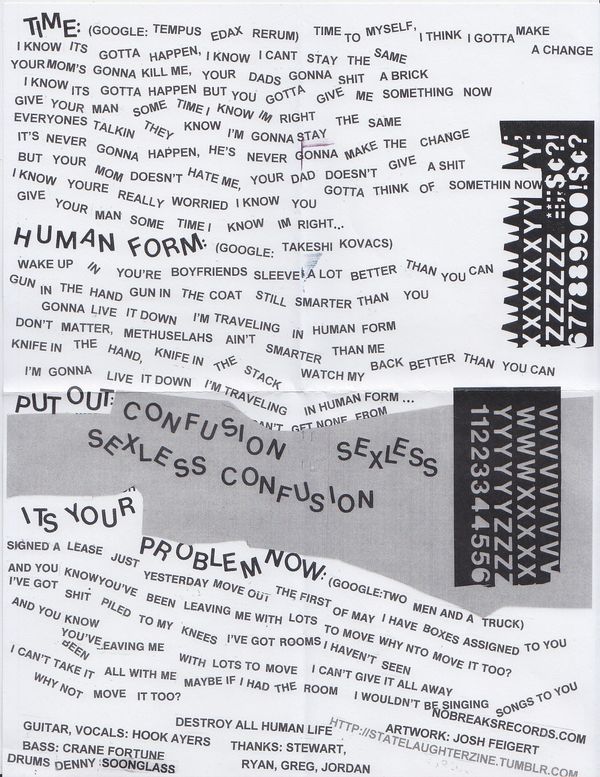 TIME: (GOOGLE: TEMPUS EDAX RERUM) TIME TO MYSELF, I THINK I GOTTA MAKE A CHANGE
I KNOW ITS GOTTA HAPPEN, I KNOW I CANT STAY THE SAME
YOUR MOM'S GONNA KILL ME, YOUR DADS GONNA SHIT A BRICK
I KNOW ITS GOTTA HAPPEN BUT YOU GOTTA GIVE ME SOMETHING NOW
GIVE YOUR MAN SOME TIME I KNOW IM RIGHT
EVERYONES TALKIN THEY KNOW I'M GONNA STAY THE SAME
IT'S NEVER GONNA HAPPEN, HE'S NEVER GONNA MAKE THE CHANGE
BUT YOUR MOM DOESN'T HATE ME, YOUR DAD DOESN'T GIVE A SHIT
I KNOW YOURE REALLY WORRIED I KNOW YOU GOTTA THINK OF SOMETHIN NOW
GIVE YOUR MAN SOME TIME I KNOW IM RIGHT...
HUMAN FORM: (GOOGLE: TAKESHI KOVACS)
WAKE UP IN YOU'RE BOYFRIENDS SLEEVE A LOT BETTER THAN YOU CAN
GUN IN THE HAND GUN IN THE COAT STILL SMARTER THAN YOU
GONNA LIVE IT DOWN I'M TRAVELING IN HUMAN FORM
DON'T MATTER, METHUSELAHS AIN'T SMARTER THAN ME
KNIFE IN THE HAND, KNIFE IN THE STACK WATCH MY BACK BETTER THAN YOU CAN
I'M GONNA LIVE IT DOWN I'M TRAVELING IN HUMAN FORM ...
PUT OUT: CAN'T GET NONE FROM
CONFUSION SEXLESS
SEXLESS CONFUSION
ITS YOUR PROBLEM NOW: (GOOGLE:TWO MEN AND A TRUCK)
SIGNED A LEASE JUST YESTERDAY MOVE OUT THE FIRST OF MAY I HAVE BOXES ASSIGNED TO YOU
AND YOU KNOW YOU'VE BEEN LEAVING ME WITH LOTS TO MOVE WHY NTO MOVE IT TOO?
I'VE GOT SHIT PILED TO MY KNEES I'VE GOT ROOMS I HAVEN'T SEEN
AND YOU KNOW YOU'VE BEEN EAVING ME WITH LOTS TO MOVE I CAN'T GIVE IT ALL AWAY
I CAN'T TAKE IT ALL WITH ME MAYBE IF I HAD THE ROOM I WOULDN'T BE SINGING SONGS TO YOU
WHY NOT MOVE IT TOO?
NOBREAKSRECORDS.COM
DESTROY ALL HUMAN LIFE HTTP://STATELAUGHTERZINE.TUMBLR.COM
GUITAR, VOCALS: HOOK AYERS
ARTWORK: JOSH FEIGERT
BASS: CRANE FORTUNE
THANKS: STEWART,
DRUMS DENNY SOONGLASS
RYAN, GREG, JORDAN
XXXXXXXYY
ZZZZZZZ
677889900!$¢?!
VVVVVVVVV
WWWXXXXX
YYYYYYZZZZ
11223344556